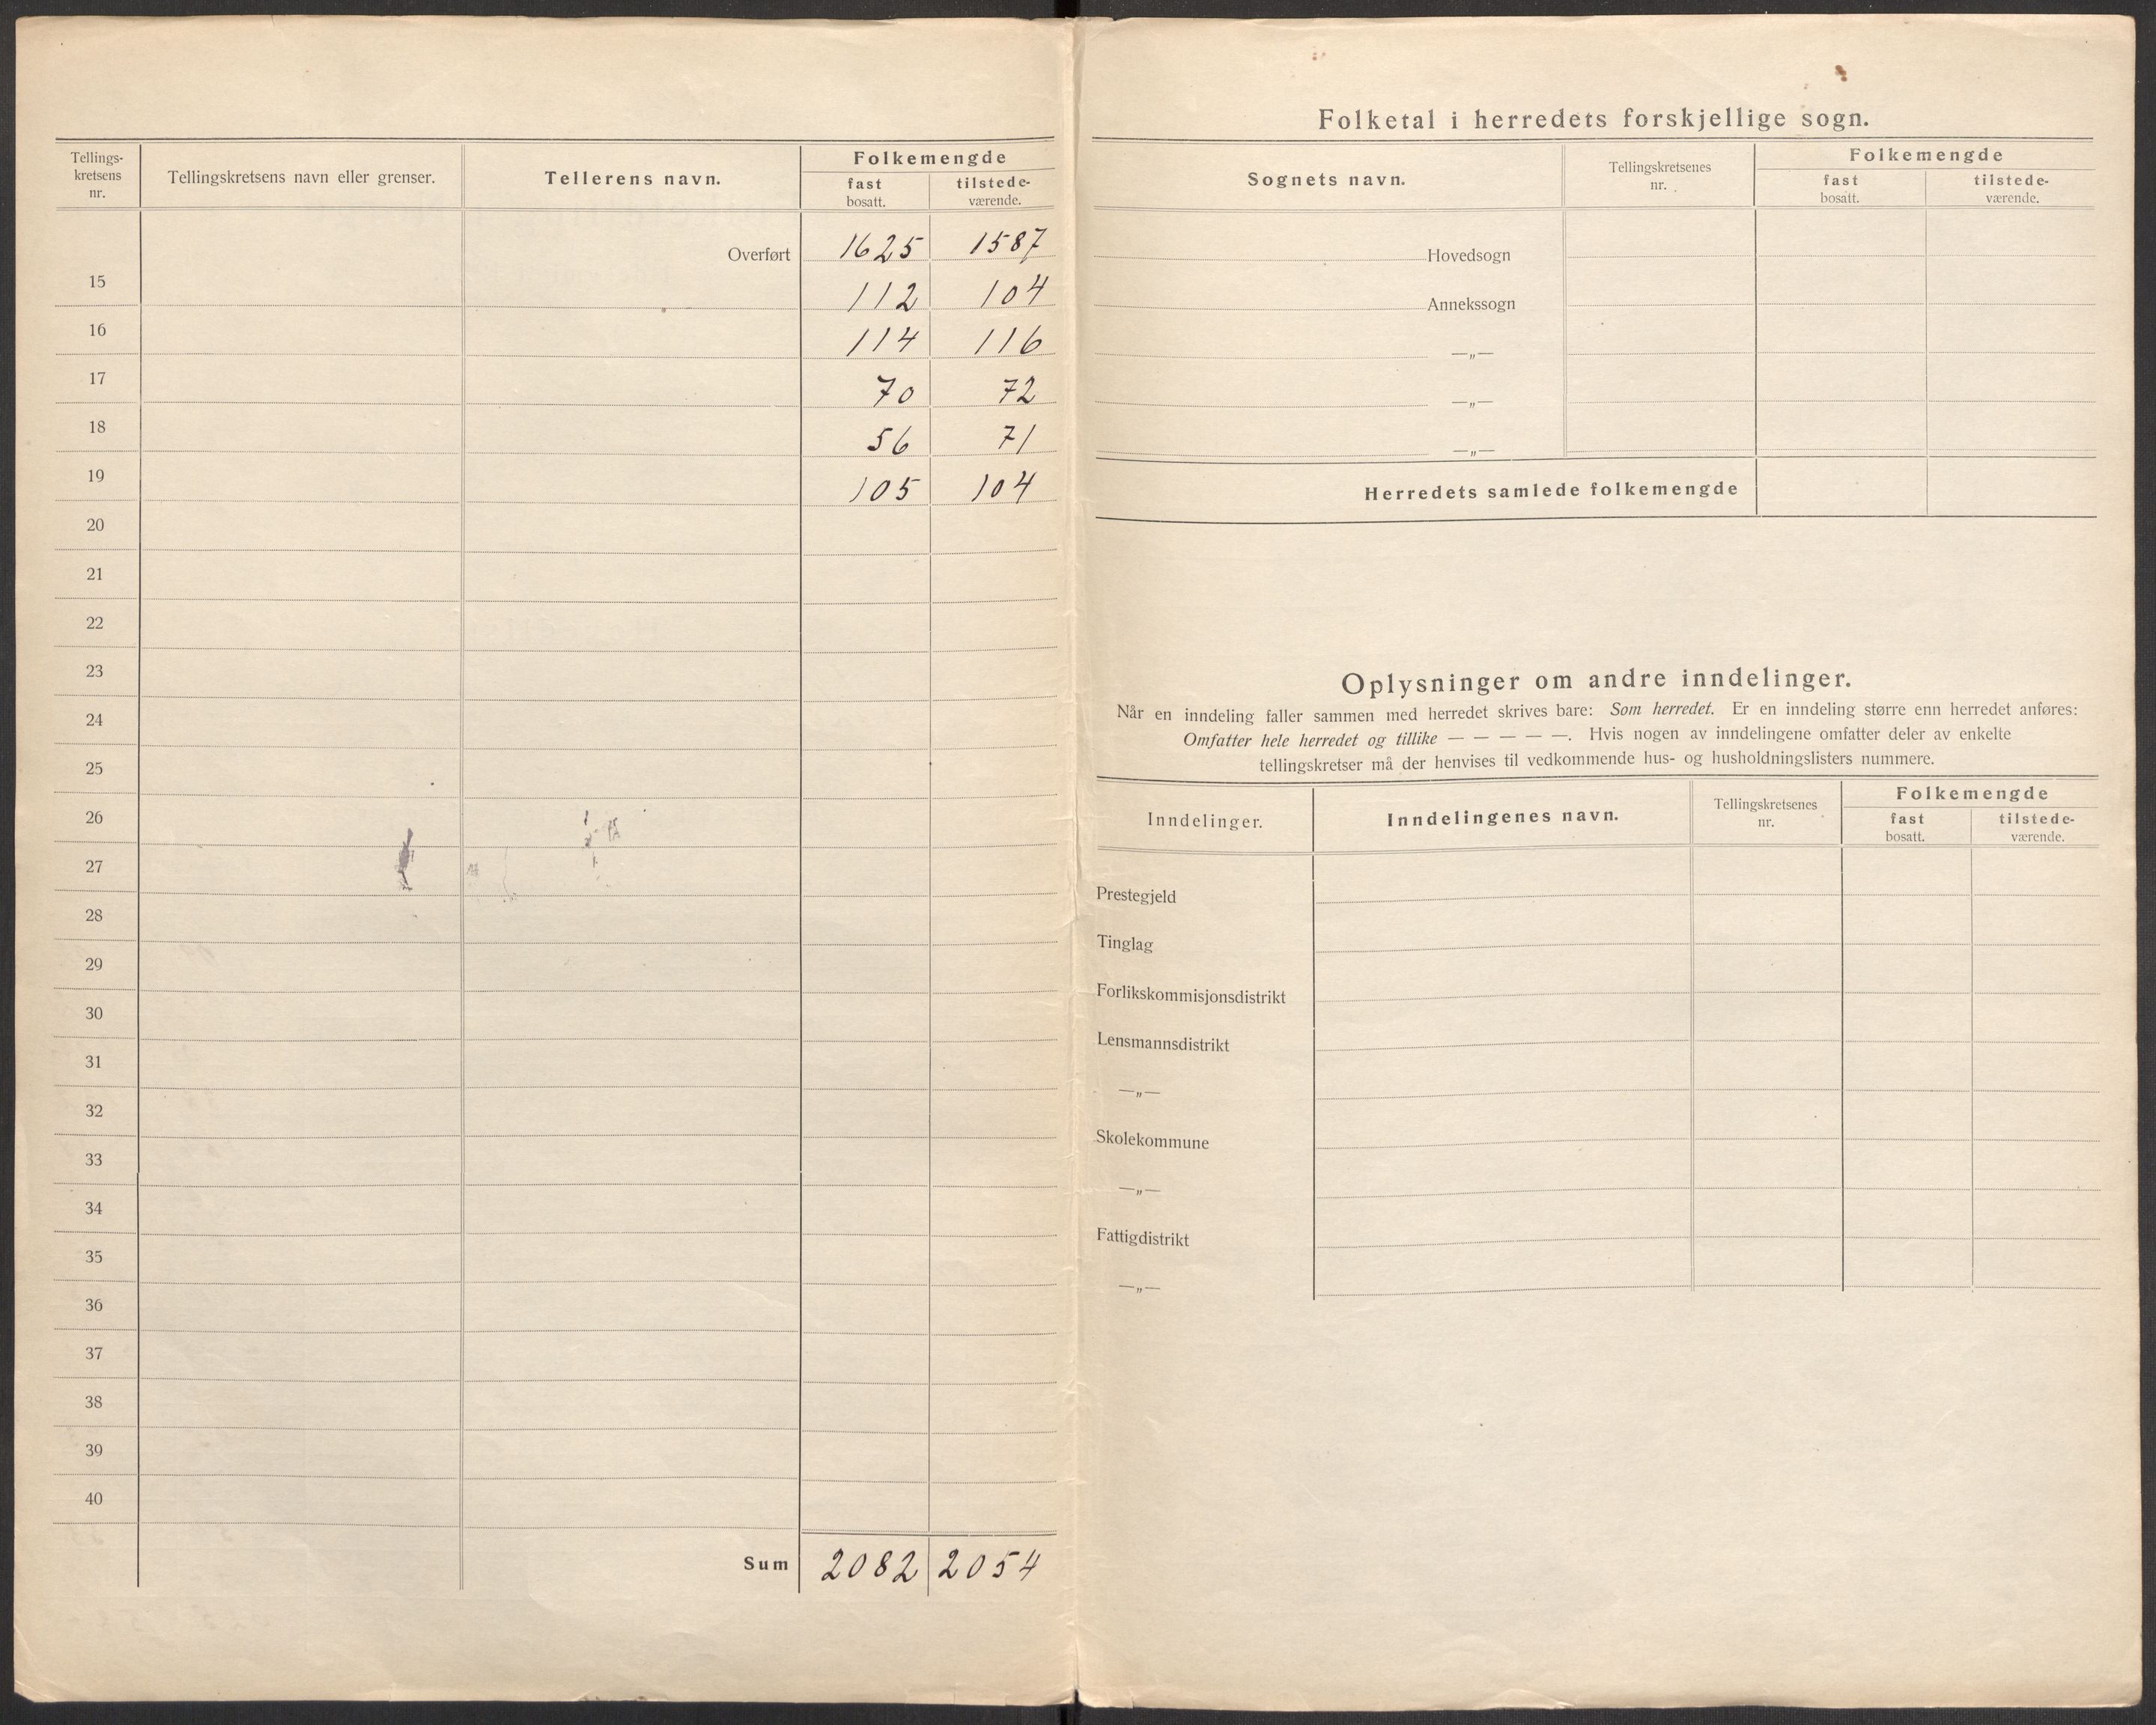 Tellings-
kretsens
nr.
Tellingskretsens navn eller grenser.
Tellerens navn.
Folkemengde
fast
bosatt.
tilstede-
værende.
Overført 1625 1587
15 112 104
16 114 116
17 70 72
18 56 71
19 105 104
20
21
22
23
24
25
26
27
28
29
30
31
32
33
34
35
36
37
38
39
40
Sum 2082 2054
Folketal i herredets forskjellige sogn.
Sognets navn.
Tellingskretsenes
nr.
Folkemengde
fast
bosatt.
tilstede-
værende.
Hovedsogn
Annekssogn
—„—
—„—
—„—
Herredets samlede folkemengde
Oplysninger om andre inndelinger.
Når en inndeling faller sammen med herredet skrives bare: Som herredet. Er en inndeling større enn herredet anføres:
Omfatter hele herredet og tillike — — — — —. Hvis nogen av inndelingene omfatter deler av enkelte
tellingskretser må der henvises til vedkommende hus- og husholdningslisters nummere.
Inndelinger.
Inndelingenes navn.
Tellingskretsenes
nr.
Folkemengde
fast
bosatt.
tilstede-
værende.
Prestegjeld
Tinglag
Forlikskommisjonsdistrikt
Lensmannsdistrikt
—„—
Skolekommune
—„—
Fattigdistrikt
—„—